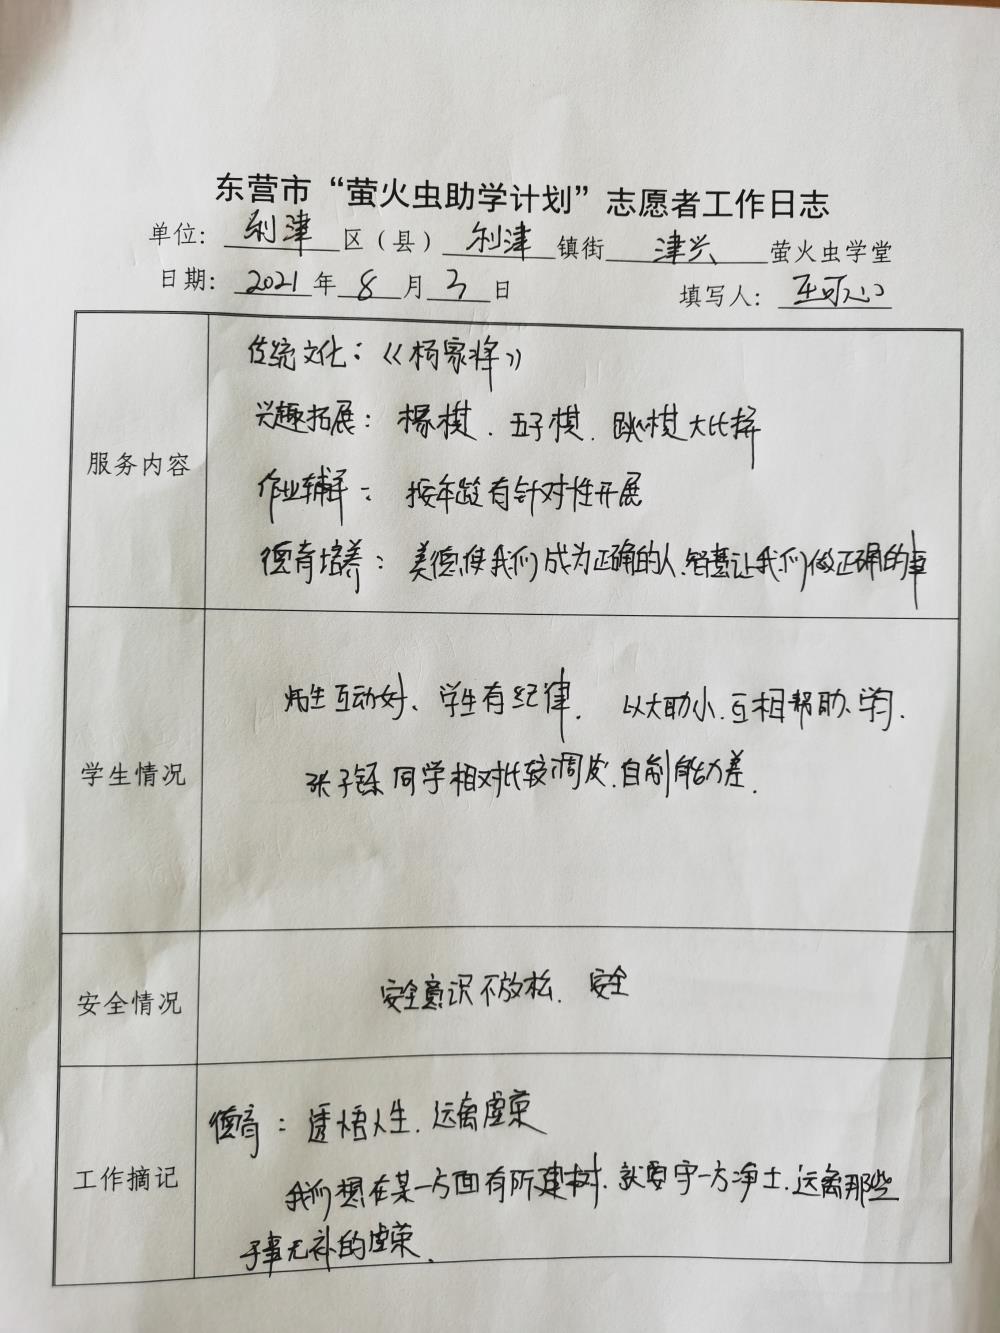 东营市“萤火虫助学计划”志愿者工作日志
单位：利津区（县）利津镇街津兴萤火虫学堂
日期：2021年8月3日 填写人：王可心
服务内容
传统文化：《杨家将》
兴趣拓展：橡棋、五子棋、跳棋大比拼
作业辅导：按年龄有针对性开展
德育培养：美德使我们成为正确的人、智慧让我们做正确的事
学生情况
师生互动好、学生有纪律、以大助小、互相帮助、学习.
张子铄同学相对比较调皮、自制能力差.
安全情况
安全意识不放松、安全
工作摘记
德育：透悟人生、远离虚荣
我们想在某一方面有所建树、就要守一方净土、远离那些
于事无补的虚荣.